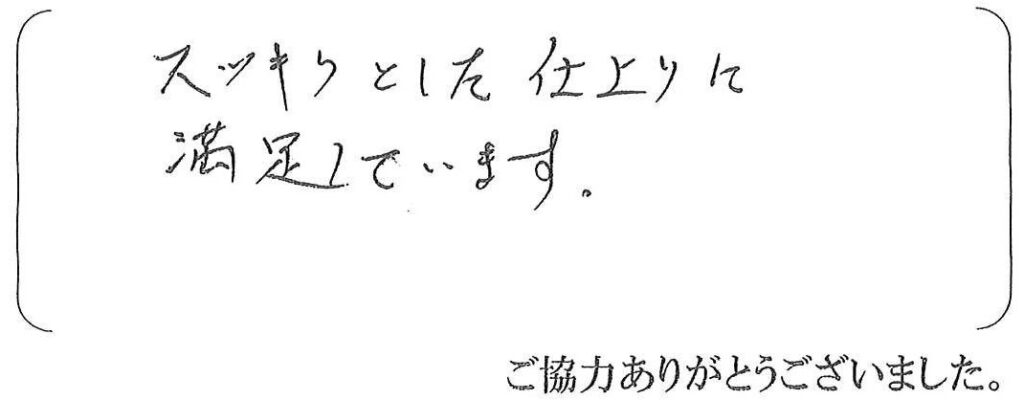 スッキリとした仕上りに
満足しています。
ご協力ありがとうございました。